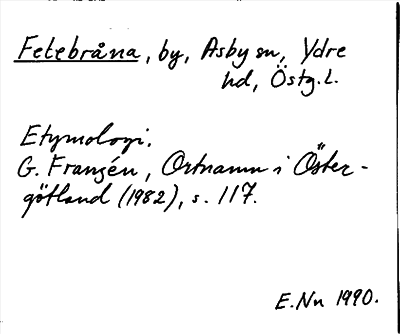 Fetebråna, by, Asby sn, Ydre
hd, Östg.l.
Etymologi.
G. Franzén, Ortnamn i Öster-
götland (1982), s. 117.
E.Nn 1990.